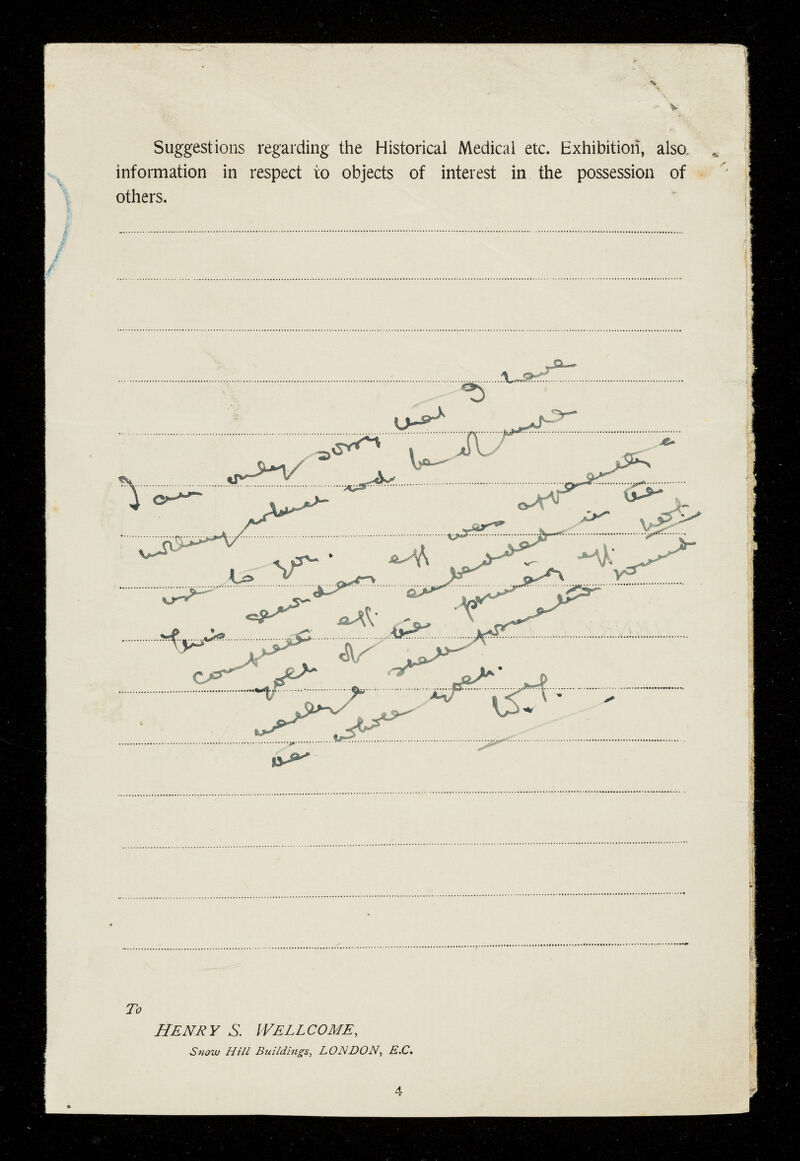 Suggestions regarding the Historical Medical etc. Exhibition, also
information in respect to objects of interest in the possession of
others.
I am only sorry that I have
nothing which wd. be of more
use to you.
This secondary egg was apparently a
complete egg embedded in the
yolk of the primary egg. not
merely a shell formation round
the whole yolk.
To
HENRY S. WELLCOME,
Snow Hill Buildings, LONDON, E.C.
4